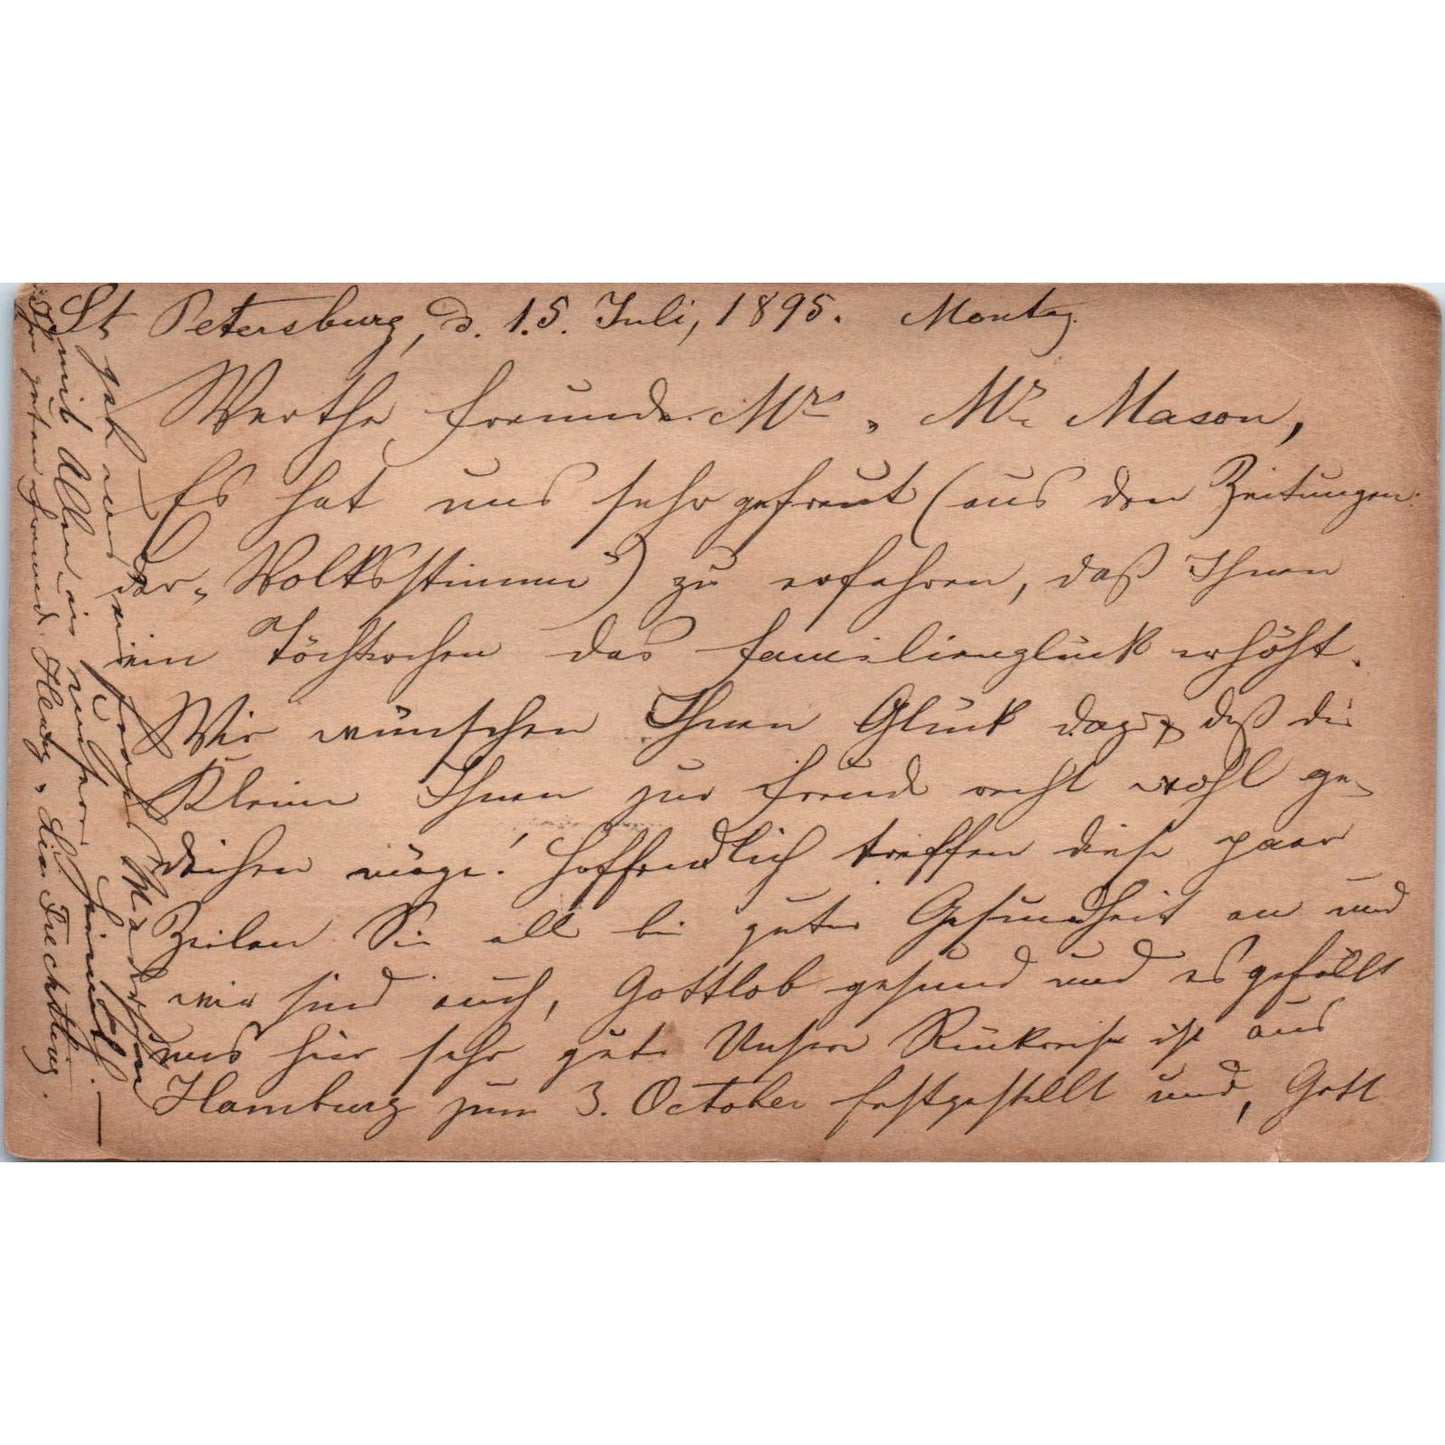 St Petersburg, d. 15. Juli, 1895. Montag.
Werthe Freunde Mrs u. Mr. Mason,
Es hat uns sehr gefreut (aus den Zeitungen
der „Volksstimme") zu erfahren, daß Ihnen
ein Töchterchen das Familienglück erhöht.
Wir wünschen Ihnen Glück dazu, daß die
Kleine Ihnen zur Freude recht wohl ge-
deihen möge! Hoffendlich treffen diese paar
Zeilen Sie all bei guter Gesundheit an und
wir sind auch, Gottlob gesund und es gefällt
uns hier sehr gut. Unsere Rückreise ist aus
Hamburg zum 3. October festgestellt und, Gott
geb uns ein frohes Wiedersehen
mit Allen in unserer Heimath. —
Ihre guten Freunde Henry u. Lina Trechtling.